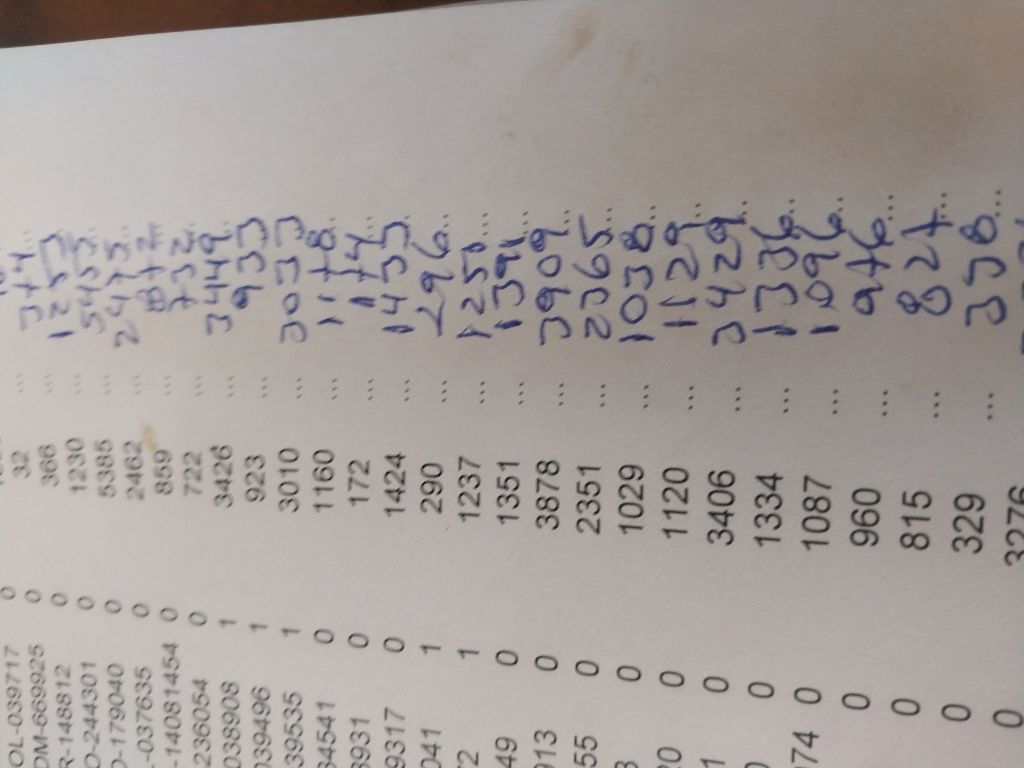 OL-039717 0
DM-669925 0 32 ...
R-148812 0 366 ... 374 ...
O-244301 0 1230 ... 1253
D-179040 0 5385 ... 5453 ...
-037635 0 2462 ... 2475 ...
-14081454 0 859 ... 872
236054 0 722 ... 732 ...
038908 1 3426 ... 3449 ...
039496 1 923 ... 933
39535 1 3010 ... 3033
34541 0 1160 ... 1178 ...
3931 0 172 ...
9317 0 1424 ... 1435 ...
041 1 290 ... 296 ...
72 1 1237 ... 1250 ...
49 0 1351 ...
913 0 3878 ... 3909 ...
55 0 2351 ... 2365 ...
0 1029 ... 1038 ...
20 0 1120 ... 1129 ...
1 0 3406 ... 3429 ...
0 1334 ... 1336 ...
074 0 1087 ... 1096 ...
0 960 ... 976 ...
0 815 ... 827 ...
0 329 ... 338 ...
0 3276